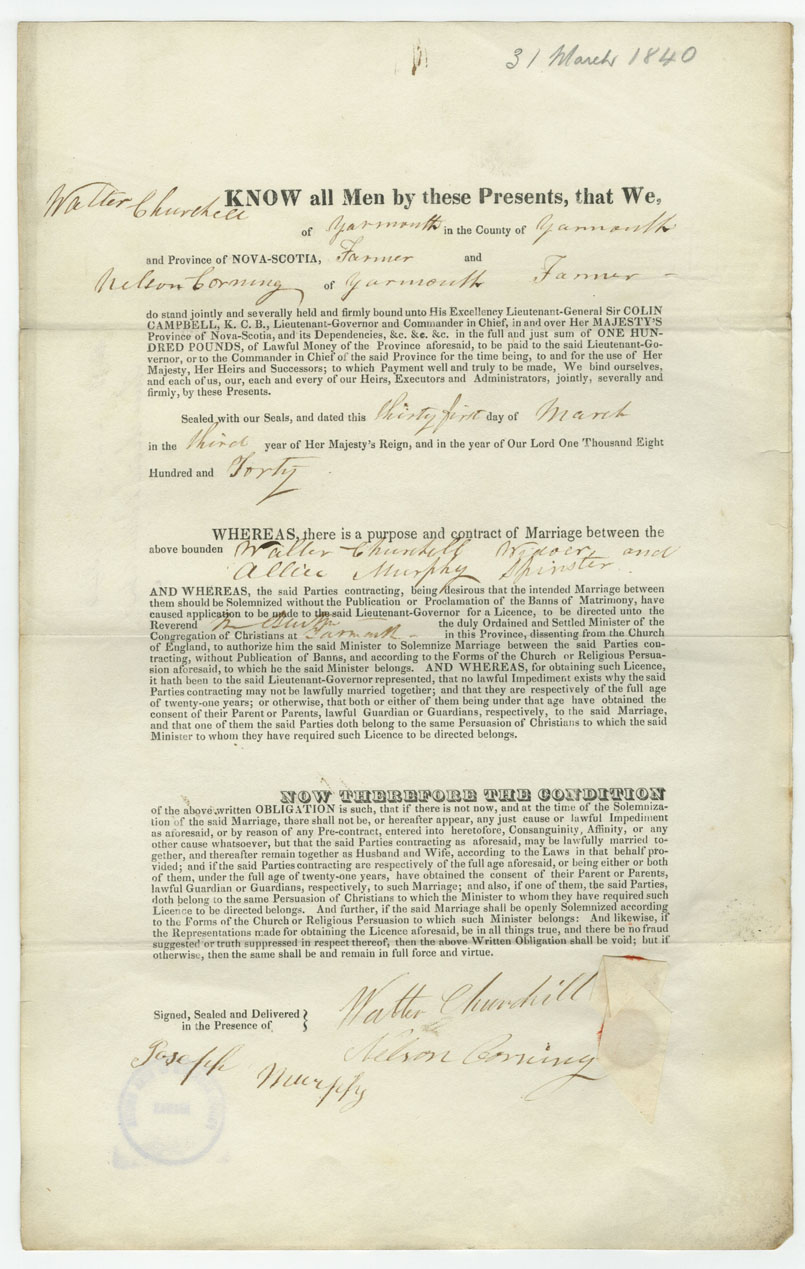 31 March 1840
KNOW all Men by these Presents, that We,
Walter Churchill
of Yarmouth in the County of Yarmouth
and Province of NOVA-SCOTIA, Farmer and
Nelson Corning of Yarmouth Farmer
do stand jointly and severally held and firmly bound unto His Excellency Lieutenant-General Sir COLIN
CAMPBELL, K. C. B., Lieutenant-Governor and Commander in Chief, in and over Her MAJESTY'S
Province of Nova-Scotia, and its Dependencies, &c. &c. &c. in the full and just sum of ONE HUN-
DRED POUNDS, of Lawful Money of the Province aforesaid, to be paid to the said Lieutenant-Go-
vernor, or to the Commander in Chief of the said Province for the time being, to and for the use of Her
Majesty, Her Heirs and Successors; to which Payment well and truly to be made, We bind ourselves,
and each of us, our, each and every of our Heirs, Executors and Administrators, jointly, severally and
firmly, by these Presents.
Sealed with our Seals, and dated this thirty first day of March
in the third year of Her Majesty's Reign, and in the year of Our Lord One Thousand Eight
Hundred and Forty
WHEREAS, there is a purpose and contract of Marriage between the
above bounden Walter Churchill Widoer and
Allice Murphy Spinster
AND WHEREAS, the said Parties contracting, being desirous that the intended Marriage between
them should be Solemnized without the Publication or Proclamation of the Banns of Matrimony, have
caused application to be made to the said Lieutenant-Governor for a Licence, to be directed unto the
Reverend the duly Ordained and Settled Minister of the
Congregation of Christians at Yarmouth in this Province, dissenting from the Church
of England, to authorize him the said Minister to Solemnize Marriage between the said Parties con-
tracting, without Publication of Banns, and according to the Forms of the Church or Religious Persua-
sion aforesaid, to which he the said Minister belongs. AND WHEREAS, for obtaining such Licence,
it hath been to the said Lieutenant-Governor represented, that no lawful Impediment exists why the said
Parties contracting may not be lawfully married together; and that they are respectively of the full age
of twenty-one years; or otherwise, that both or either of them being under that age have obtained the
consent of their Parent or Parents, lawful Guardian or Guardians, respectively, to the said Marriage,
and that one of them the said Parties doth belong to the same Persuasion of Christians to which the said
Minister to whom they have required such Licence to be directed belongs.
NOW THEREFORE THE CONDITION
of the above written OBLIGATION is such, that if there is not now, and at the time of the Solemniza-
tion of the said Marriage, there shall not be, or hereafter appear, any just cause or lawful Impediment
as aforesaid, or by reason of any Pre-contract, entered into heretofore, Consanguinity, Affinity, or any
other cause whatsoever, but that the said Parties contracting as aforesaid, may be lawfully married to-
gether, and thereafter remain together as Husband and Wife, according to the Laws in that behalf pro-
vided; and if the said Parties contracting are respectively of the full age aforesaid, or being either or both
of them, under the full age of twenty-one years, have obtained the consent of their Parent or Parents,
lawful Guardian or Guardians, respectively, to such Marriage; and also, if one of them, the said Parties,
doth belong to the same Persuasion of Christians to which the Minister to whom they have required such
Licence to be directed belongs. And further, if the said Marriage shall be openly Solemnized according
to the Forms of the Church or Religious Persuasion to which such Minister belongs: And likewise, if
the Representations made for obtaining the Licence aforesaid, be in all things true, and there be no fraud
suggested or truth suppressed in respect thereof, then the above Written Obligation shall be void; but if
otherwise, then the same shall be and remain in full force and virtue.
Signed, Sealed and Delivered
in the Presence of
Walter Churchill
Nelson Corning
Joseph Murphy